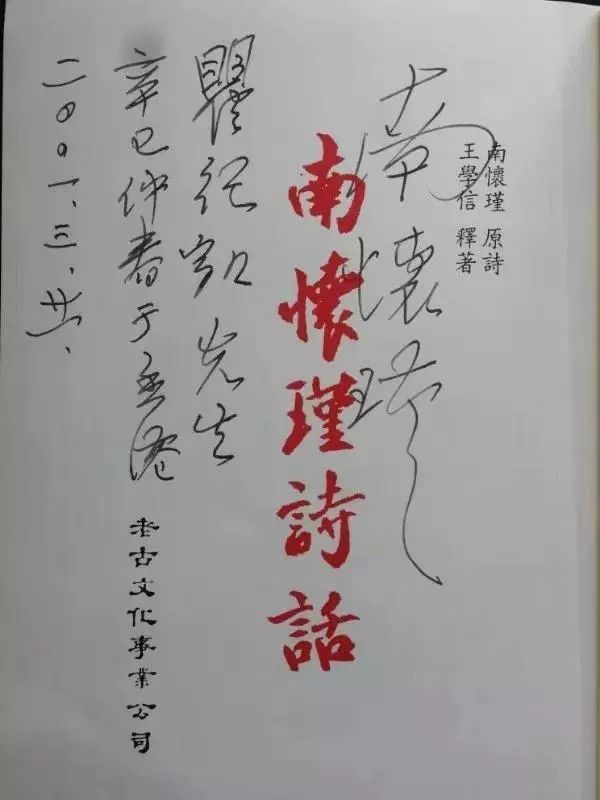 南懷瑾 原詩
王學信 釋著
南懷瑾
南懷瑾詩話
瞿 先生
辛巳仲春于香港
老古文化事業公司
二〇〇一、三、廿